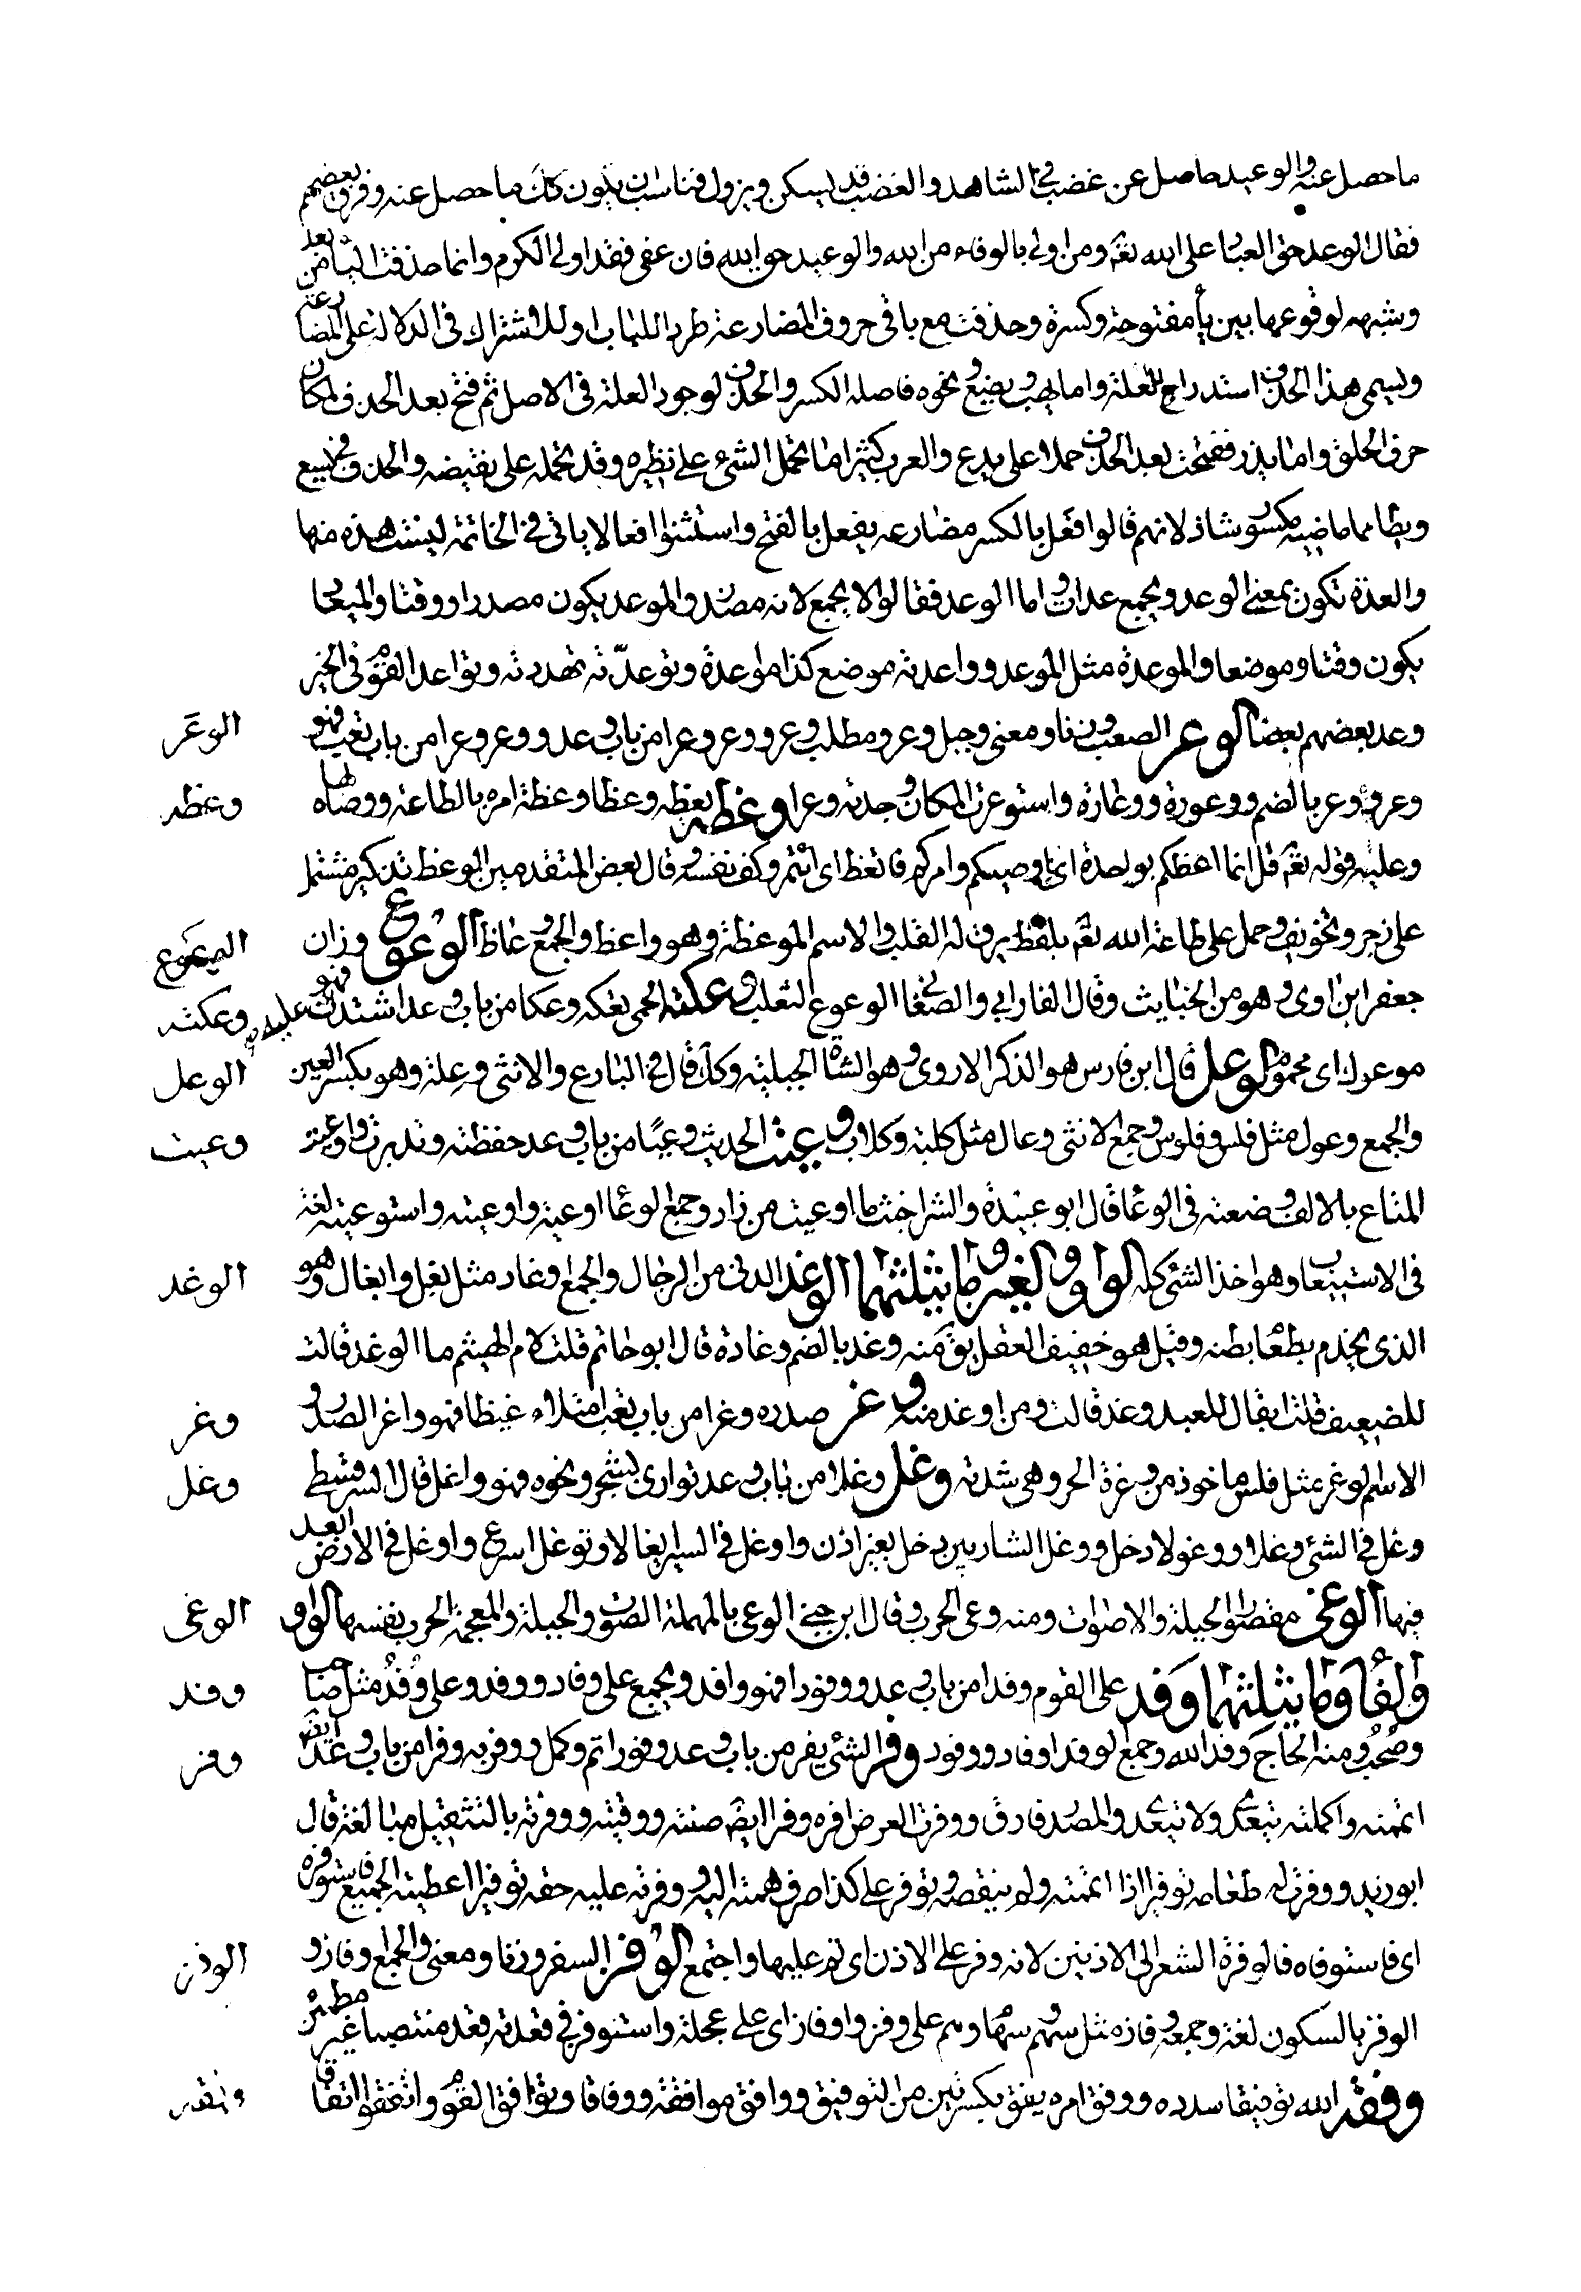 ما حصل عنه والوعيد حاصل عن غضب في الشاهد والغضب قد يسكن ويزول فناسب ان يكون كذلك ما حصل عنه وفرق بعضهم
فقال الوعد حق العباد على الله تعم ومن اولى بالوفاء من الله والوعيد حق الله فان عفى فقد اولى الكرم وانما حذفت الياء من يعد
وشبهه لوقوعها بين يأ مفتوحة وكسرة وحذفت مع باقي حروف المضارعة طردا للباب او للاشتراك في الدلالة على المضارعة
ويسمى هذا الحذف استدراج للعلة واما يهب ويضيع ونحوه فاصله الكسر والحذف لوجود العلة في الاصل ثم فتح بعد الحذف لمكان
حرف الحلق واما يذر ففتحت بعد الحذف حملا على يدع والعرب كثيرا ما تحمل الشيء على نظيره وقد تحمله على نقيضه والحذف في يسع
ويطا مما ماضيه مكسور شاذ لانهم قالوا فعل بالكسر مضارعه يفعل بالفتح واستثنوا افعالا ياتي في الخاتمة ليست هذه منها
والعدة تكون بمعنى الوعد ويجمع عدات واما الوعد فقالوا لا يجمع لانه مصدر والموعد يكون مصدرا ووقتا والميعاد
يكون وقتا وموضعا والموعدة مثل الموعد وواعدته موضع كذا مواعدة وتوعدّته تهددته وتواعد القوم في الخير
وعد بعضهم بعضا الوعر الصعب وزنا ومعنى وجبل وعر ومطلب وعر ووعر وعرا من باب وعد ووعر وعرا من باب تعب فهو
وعر ووعر بالضم وعورة ووعارة واستوعرت المكان وجدته وعرا وعظه يعظه وعظا وعظة امره بالطاعة ووصاه بها
وعليه قوله تعم قل انما اعظكم بواحدة اي اوصيكم وامركم فاتعظ اي ائتمر وكف نفسه وقال بعض المتقدمين الوعظ تذكير مشتمل
على زجر وتخويف وحمل على طاعة الله تعم بلفظ يرق له القلب والاسم الموعظة وهو واعظ والجمع وعاظ الوعوع وزان
جعفر ابن اوى وهو من الخبايث وقال الفارابي والصغاني الوعوع الثعلب وعكته الحمى تعكه وعكا من باب وعد اشتدت عليه فهو
موعوك اي محموم الوعل قال ابن فارس هو الذكر الاروى وهو الشاة الجبلية وكذا قال في البارع والانثى وعلة وهو بكسر العين
والجمع وعول مثل فلس وفلوس وجمع الانثى وعال مثل كلبة وكلاب وعيت الحديث وعيا من باب وعد حفظته وتدبرته واوعيت
المتاع بالالف وضعته في الوعا قال ابو عبيدة والشر اخبث ما اوعيت من زاد وجمع الوعا اوعية واوعيته واستوعيته لغة
في الاستيعاب وهو اخذ الشئ كله الواو والغين وما يثلثهما الوغد الدني من الرجال والجمع اوغاد مثل بغل وابغال وهو
الذي يخدم بطعام بطنه وقيل هو خفيف العقل يق منه وغد بالضم وغادة قال ابو حاتم قلت لام الهيثم ما الوغد قالت
للضعيف قلت ايقال للعبد وغد قالت ومن اوغد منه وغر صدره وغرا من باب تعب امتلاء غيظا فهو واغر الصدر و
الاسم الوغر مثل فلس ماخوذ من وغرة الحر وهي شدته وغل وغلا من باب وعد توارى بشجر ونحوه فهو واغل قال السرقسطي
وغل في الشئ وغلا ووغولا دخل ووغل الشاربين دخل بغير اذن واوغل في السير ايغالا وتوغل اسرع واوغل في الارض ابعد
فيها الوغى مقصور الجبلة والاصوات ومنه وغى الحرب وقال ابن جني الوعى بالمهملة الصوت والجبلة والمعجمة الحرب نفسها الواو
والفا وما يثلثهما وفد على القوم وفدا من باب وعد ووفودا فهو وافد ويجمع على وفاد ووفد وعلى وفد مثل صاحب
وصحب ومنه الحاج وفد الله وجمع الوفد اوفاد ووفود وفر الشئ يفر من باب وعد وفورا تم وكمل ووفرته وفرا من باب وعد ايضم
اتممته واكملته يتعدى ولا يتعدى والمصدر فارق ووفرت العرض افره وفرا ايضم صنته ووقيته ووفرته بالتثقيل مبالغة قال
ابو زيد ووفرت له طعامه توفيرا اذا اتممته ولم تنقصه وتوفر على كذا صرف همته اليه ووفرته عليه حقه توفيرا اعطيته الجميع فاستوفره
اي فاستوفاه فالوفرة الشعر الى الاذنين لانه وفر على الاذن اي تم عليها واجتمع الوفز السفر وزنا ومعنى والجمع اوفاز و
الوفز بالسكون لغة وجمعه وفاز مثل سهم وسهام وهم على وفز واوفاز اي على عجلة واستوفز في قعدته قعد منتصبا غير مطمئن
وفقه الله توفيقا سدده ووفق امره يفق بكسرتين من التوفيق ووافق موافقة ووفاقا وتوافق القوم واتفقوا اتفاقا
الوعر
وعظه
الوعوع
وعكته
الوعل
وعيت
الوغد
وغر
وغل
الوغى
وفد
وفر
الوفز
وفقه